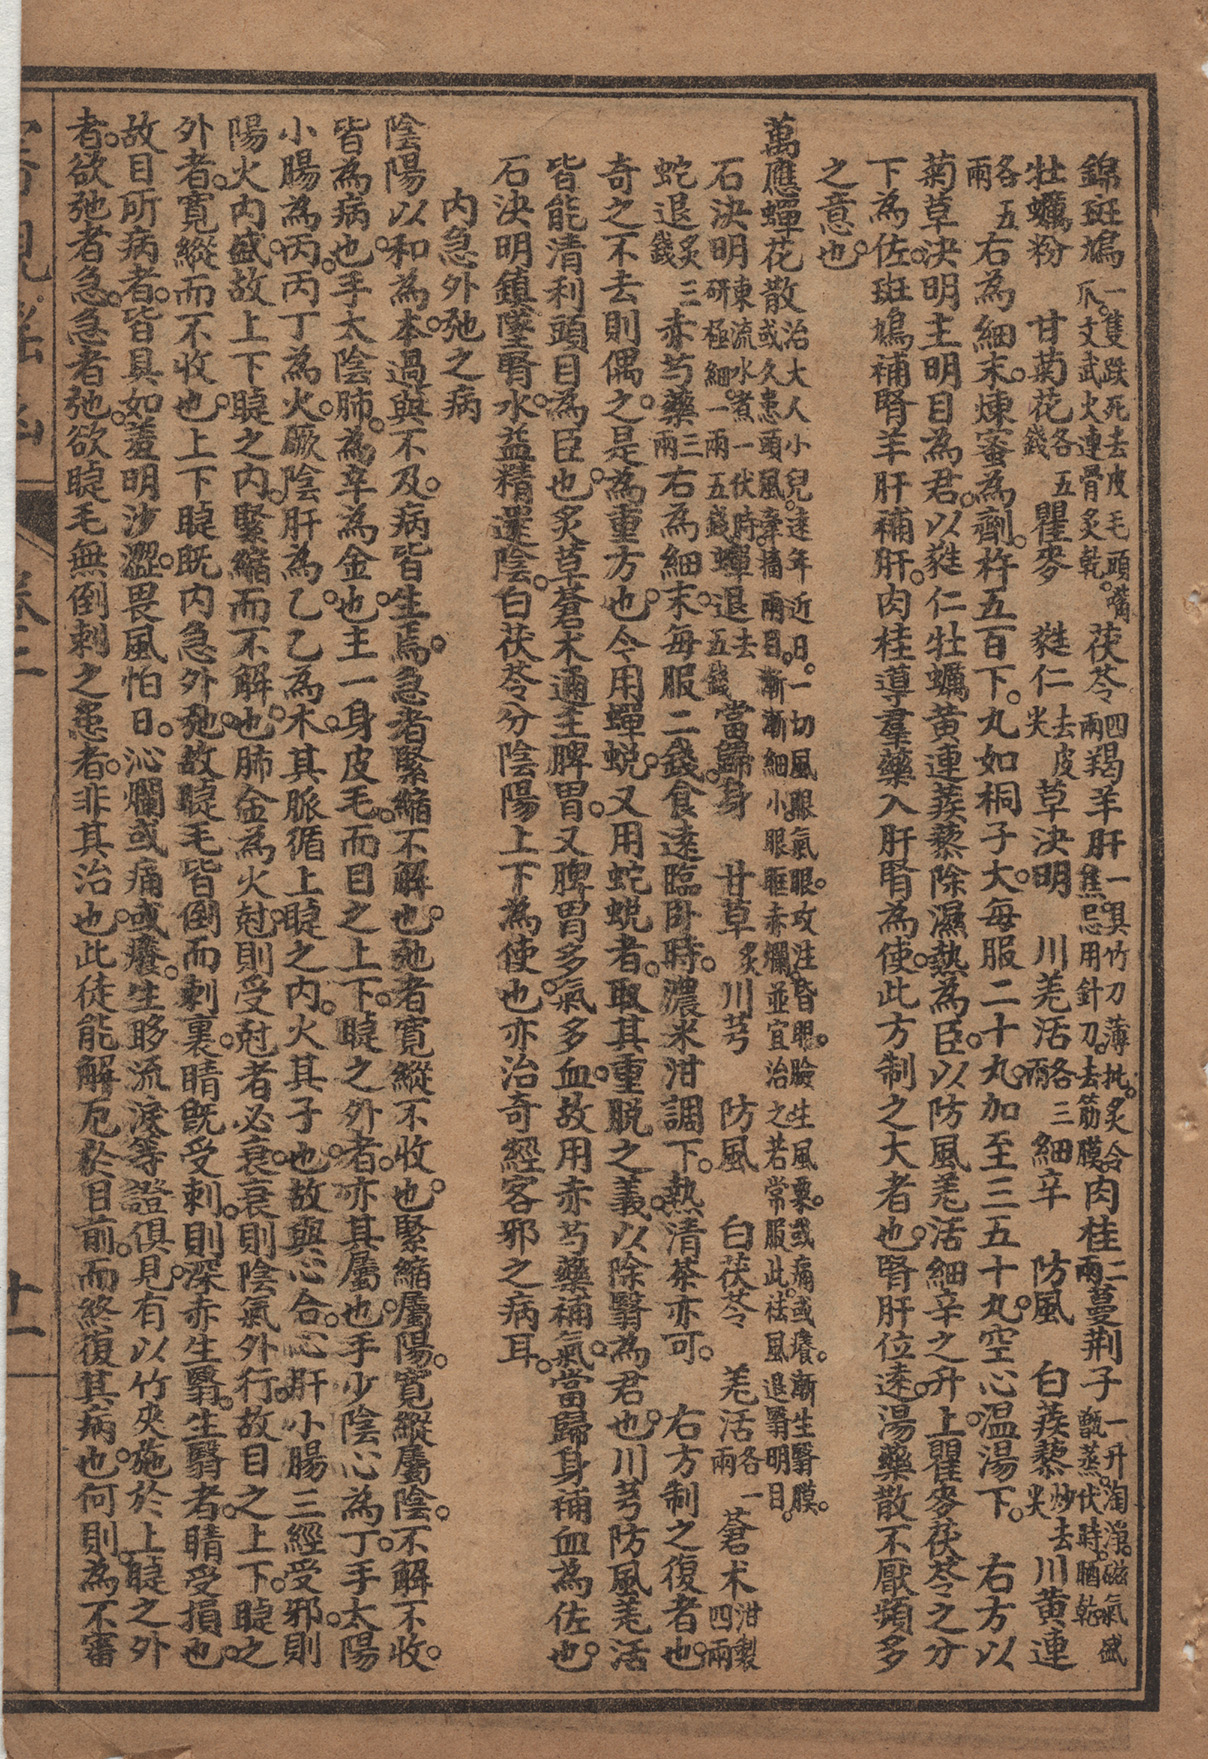 錦斑鳩一隻跌死去皮毛頭嘴爪文武火連骨炙乾茯苓四兩羯羊肝一具竹刀薄批炙合焦忌用針刀去筋膜肉桂二兩蔓荆子一升淘淨磁氣盛甑蒸伏時晒乾
牡蠣粉　甘菊花各五錢　瞿麥　蕤仁去皮尖　草決明　川羌活各三兩　細辛　防風　白蒺藜炒去尖　川黃連
各五兩右為細末煉蜜為劑杵五百下丸如桐子大每服二十丸加至三五十丸空心温湯下　右方以
菊草決明主明目為君以蕤仁牡蠣黃連蒺藜除濕熱為臣以防風羌活細辛之升上瞿麥茯苓之分
下為佐斑鳩補腎羊肝補肝肉桂導羣藥入肝腎為使此方制之大者也腎肝位遠湯藥散不厭頻多
之意也
萬應蟬花散治大人小兒遠年近日一切風眼氣眼攻注昏眼瞼生風粟或痛或癢漸生翳膜或久患頭風牽搐兩目漸漸細小眼眶赤爛並宜治之若常服此祛風退翳明目
石決明東流水煮一伏時研極細一兩五錢　蟬退去五錢　當歸身　甘草炙　川芎　防風　白茯苓　羌活各一兩　蒼术泔製四兩
蛇退炙三錢　赤芍藥三兩　右為細末每服二錢食遠臨卧時濃米泔調下熱清茶亦可　右方制之復者也
奇之不去則偶之是為重方也今用蟬蛻又用蛇蛻者取其重脫之義以除翳為君也川芎防風羌活
皆能清利頭目為臣也炙草蒼术通主脾胃又脾胃多氣多血故用赤芍藥補氣當歸身補血為佐也
石決明鎮墜腎水益精還陰白茯苓分陰陽上下為使也亦治奇經客邪之病耳
内急外弛之病
陰陽以和為本過與不及病皆生焉急者緊縮不解也弛者寛縱不收也緊縮屬陽寛縱屬陰不解不收
皆為病也手太陰肺為辛為金也主一身皮毛而目之上下睫之外者亦其屬也手少陰心為丁手太陽
小腸為丙丙丁為火厥陰肝為乙乙為木其脈循上睫之内火其子也故與心合心肝小腸三經受邪則
陽火内盛故上下睫之内緊縮而不解也肺金為火尅則受尅者必衰衰則陰氣外行故目之上下睫之
外者寛縱而不收也上下睫既内急外弛故睫毛皆倒而刺裏睛既受刺則深赤生翳生翳者睛受損也
故目所病者皆具如羞明沙澀畏風怕日沁爛或痛或癢生眵流淚等證俱見有以竹夾施於上睫之外
者欲弛者急急者弛欲睫毛無倒刺之患者非其治也此徒能解厄於目前而終復其病也何則為不審
卷三
十一